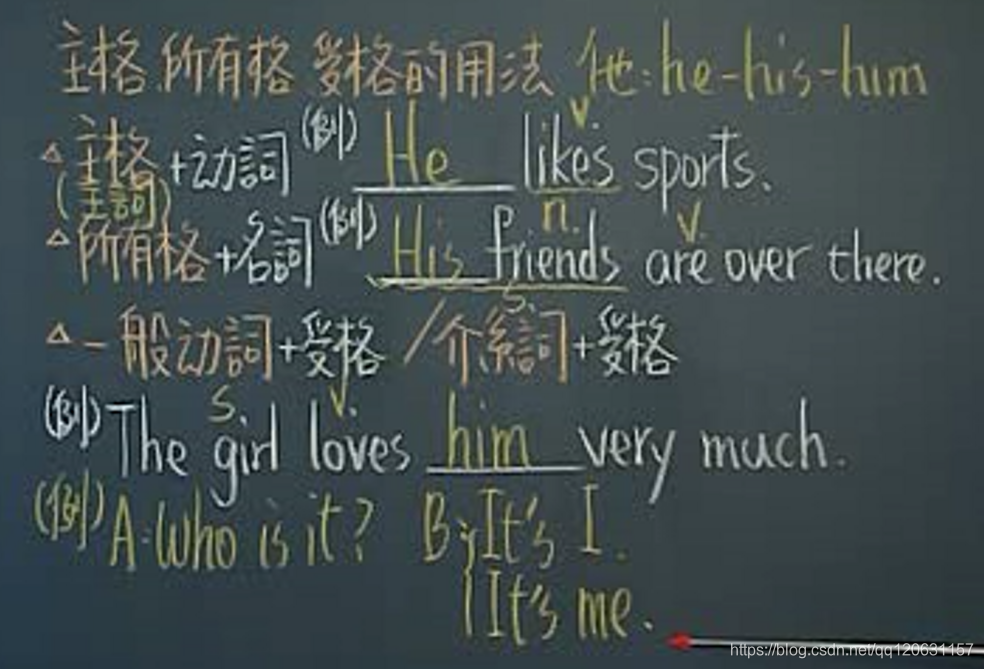 主格.所有格 受格的用法 他:he-his-him
v.
△主格+动詞 (例) He likes sports.
(主詞)
n. v.
△所有格+名詞 (例) His friends are over there.
s.
△一般动詞+受格/介系詞+受格
s. v.
(例) The girl loves him very much.
(例) A:Who is it? B:It's I.
It's me.
https://blog.csdn.net/qq120631157